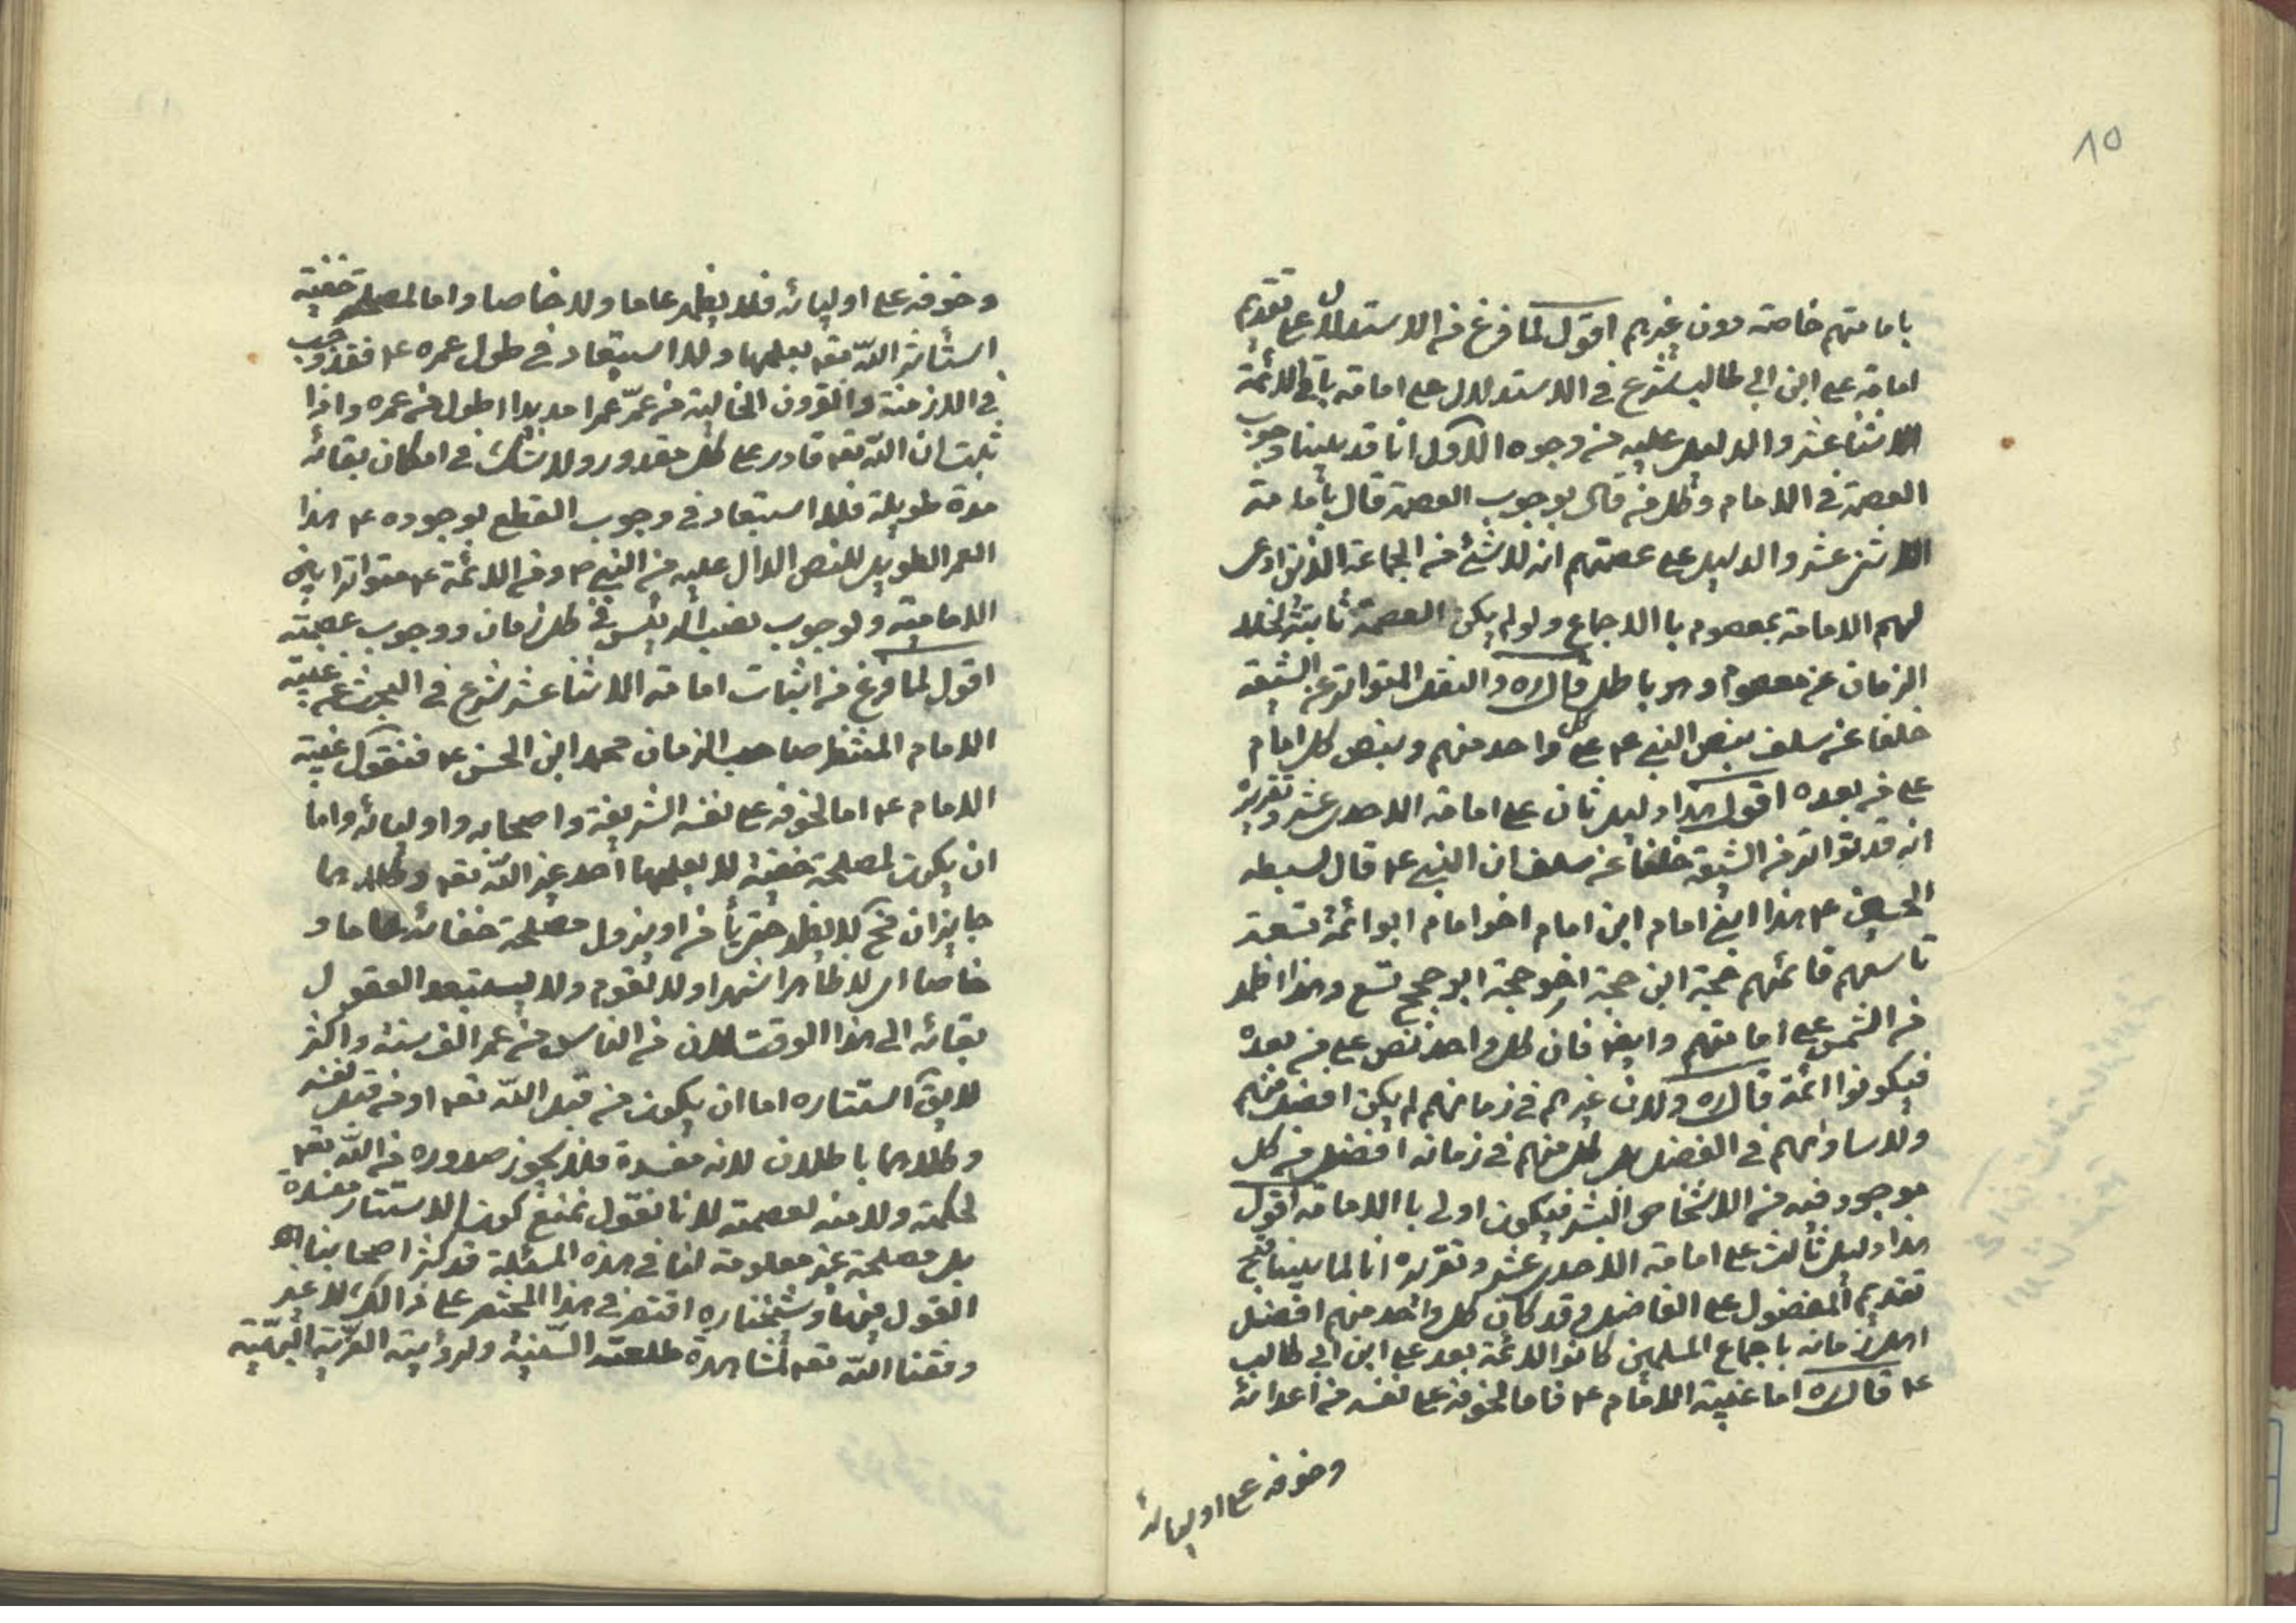 ١٥
بامامتهم خاصة دون غيرهم اقول لما فرغ من الاستدلال على تقديم
امامة على ابن ابى طالب شرع فى الاستدلال على امامة باقى الائمة
الاثنا عشر والدليل عليه من وجوه الاول انا قد بينا وجوب
العصمة فى الامام وكل من قال بوجوب العصمة قال بامامة
الاثنى عشر والدليل على عصمتهم انه لا شئ من الجماعة الذين ادعى
لهم الامامة بمعصوم باالاجماع ولو لم يكن العصمة ثابتة لخلا
الزمان عن معصوم وهو باطل قال ره والنقل المتواتر عن الشيعة
خلفا عن سلف بنص النبى ع على كل واحد منهم وبنص كل امام
على من بعده اقول هذا دليل ثان على امامة الاحدى عشر وتقريره
انه قد تواتر من الشيعة خلفا عن سلف ان النبى ع قال لسبطه
الحسين ع هذا ابنى امام ابن امام اخو امام ابو ائمة تسعة
تاسعهم قائمهم حجة ابن حجة اخو حجة ابو حجج تسع وهذا اظهر
من الشمس على امامتهم وايضا فان كل واحد نص على من بعده
فيكونوا ائمة قال ره ولان غيرهم فى زمانهم لم يكن افضل منهم
ولا ساواهم فى الفضل بل كل منهم فى زمانه افضل من كل
موجود فيه من الاشخاص البشر فيكون اولى باالامامة اقول
هذا دليل ثالث على امامة الاحدى عشر وتقريره انا لما بينا قبح
تقديم المفضول على الفاضل وقد كان كل واحد منهم افضل
اهل زمانه باجماع المسلمين كانوا الائمة بعد على ابن ابى طالب
ع قال ره اما غيبة الامام ع فاما لخوفه على نفسه من اعدائه
وخوفه على اوليائه
وخوفه على اوليائه فلا يظهر عاما ولا خاصا واما لمصلحة خفية
استأثر الله تعه بعلمها ولا استبعاد فى طول عمره ع فقد وجب
فى الازمنة والقرون الخالية من عمّر عمرا مديدا اطول من عمره واذا
ثبت ان الله تعه قادر على كل مقدور ولا شك فى امكان بقائه
مدة طويلة فلا استبعاد فى وجوب القطع بوجوده ع هذا
العمر الطويل للنص الدال عليه من النبى ص ومن الائمة ع متواترا بين
الامامية ولوجوب نصب الرئيس فى كل زمان ووجوب عصمته
اقول لما فرغ من اثبات امامة الاثنا عشر شرع فى البحث عن غيبة
الامام المنتظر صاحب الزمان محمد ابن الحسن ع فنقول غيبة
الامام ع اما لخوفه على نفسه الشريفة واصحابه واوليائه واما
ان يكون لمصلحة خفية لا يعلمها احد غير الله تعه وكلاهما
جايزان فح لا يظهر حتى يأمن او يزول مصلحة خفائه عاما و
خاصا اى لا ظاهرا شهرا ولا لقوم ولا يستبعد العقول
بقائه الى هذا الوقت لان من الناس من عمر الف سنة واكثر
لا يق استتاره اما ان يكون من قبل الله تعه او من قبل نفسه
وكلاهما باطلان لانه مفسدة فلا يجوز صدوره من الله تعه
لحكمته ولا منه لعصمته لانا نقول نمنع كون الاستتار مفسدة
بل مصلحة غير معلومة لنا فى هذه المسئلة قد كثر اصحابنا
القول فيها وشيخنا ره اقتصر فى هذا المختصر على ذالك لا غير
وفقنا الله تعه لمشاهدة طلعته السنية ولرؤية الغرّة البهيّة